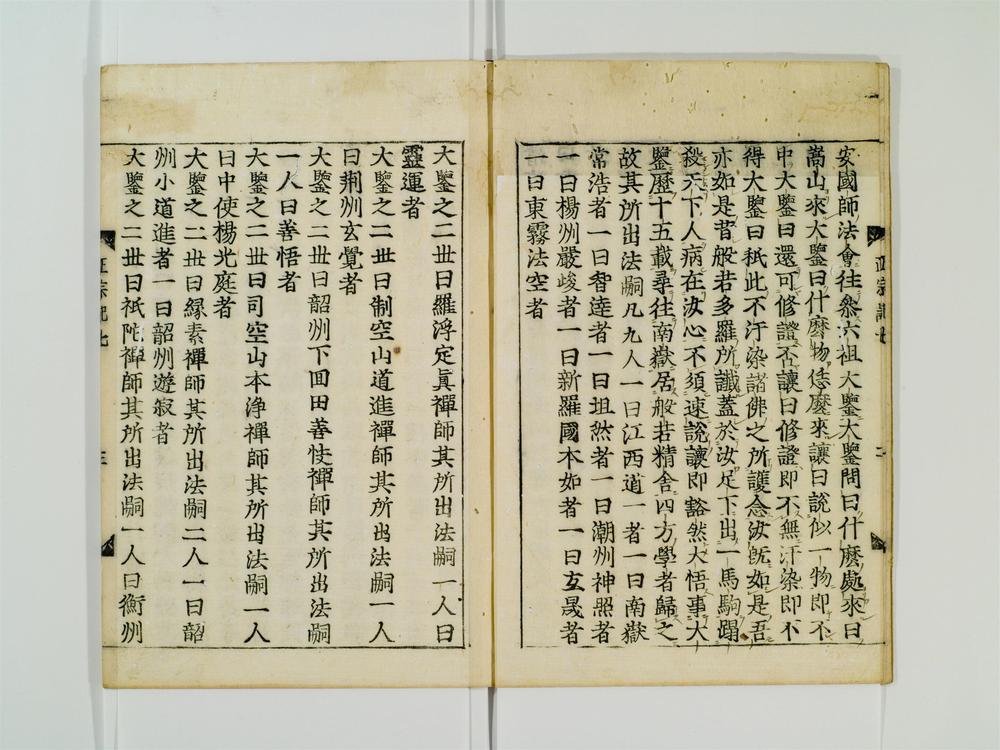 安國師法會往叅六祖大鑒大鑒問曰什麽處來曰
嵩山來大鑒曰什麽物恁麽來讓曰說似一物即不
中大鑒曰還可修證否讓曰修證即不無汙染即不
得大鑒曰秖此不汙染諸佛之所護念汝旣如是吾
亦如是昔般若多羅所讖蓋於汝足下出一馬駒蹋
殺天下人病在汝心不須速說讓即豁然大悟事大
鑒歷十五載尋往南嶽居般若精舍四方學者歸之
故其所出法嗣凡九人一曰江西道一者一曰南嶽
常浩者一曰智逹者一曰坦然者一曰潮州神照者
一曰楊州嚴峻者一曰新羅國本如者一曰玄晟者
一曰東霧法空者
正宗記七
二
大鑒之二丗曰羅浮定眞禪師其所出法嗣一人曰
靈運者
大鑒之二丗曰制空山道進禪師其所出法嗣一人
曰荆州玄覺者
大鑒之二丗曰韶州下囬田善快禪師其所出法嗣
一人曰善悟者
大鑒之二丗曰司空山本淨禪師其所出法嗣一人
曰中使楊光庭者
大鑒之二丗曰緣素禪師其所出法嗣二人一曰韶
州小道進者一曰韶州遊寂者
大鑒之二丗曰祇陁禪師其所出法嗣一人曰衡州
正宗記七
三